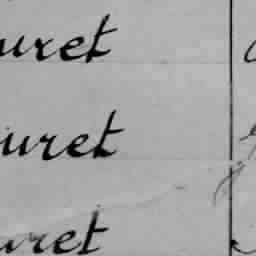 uret
uret
uret